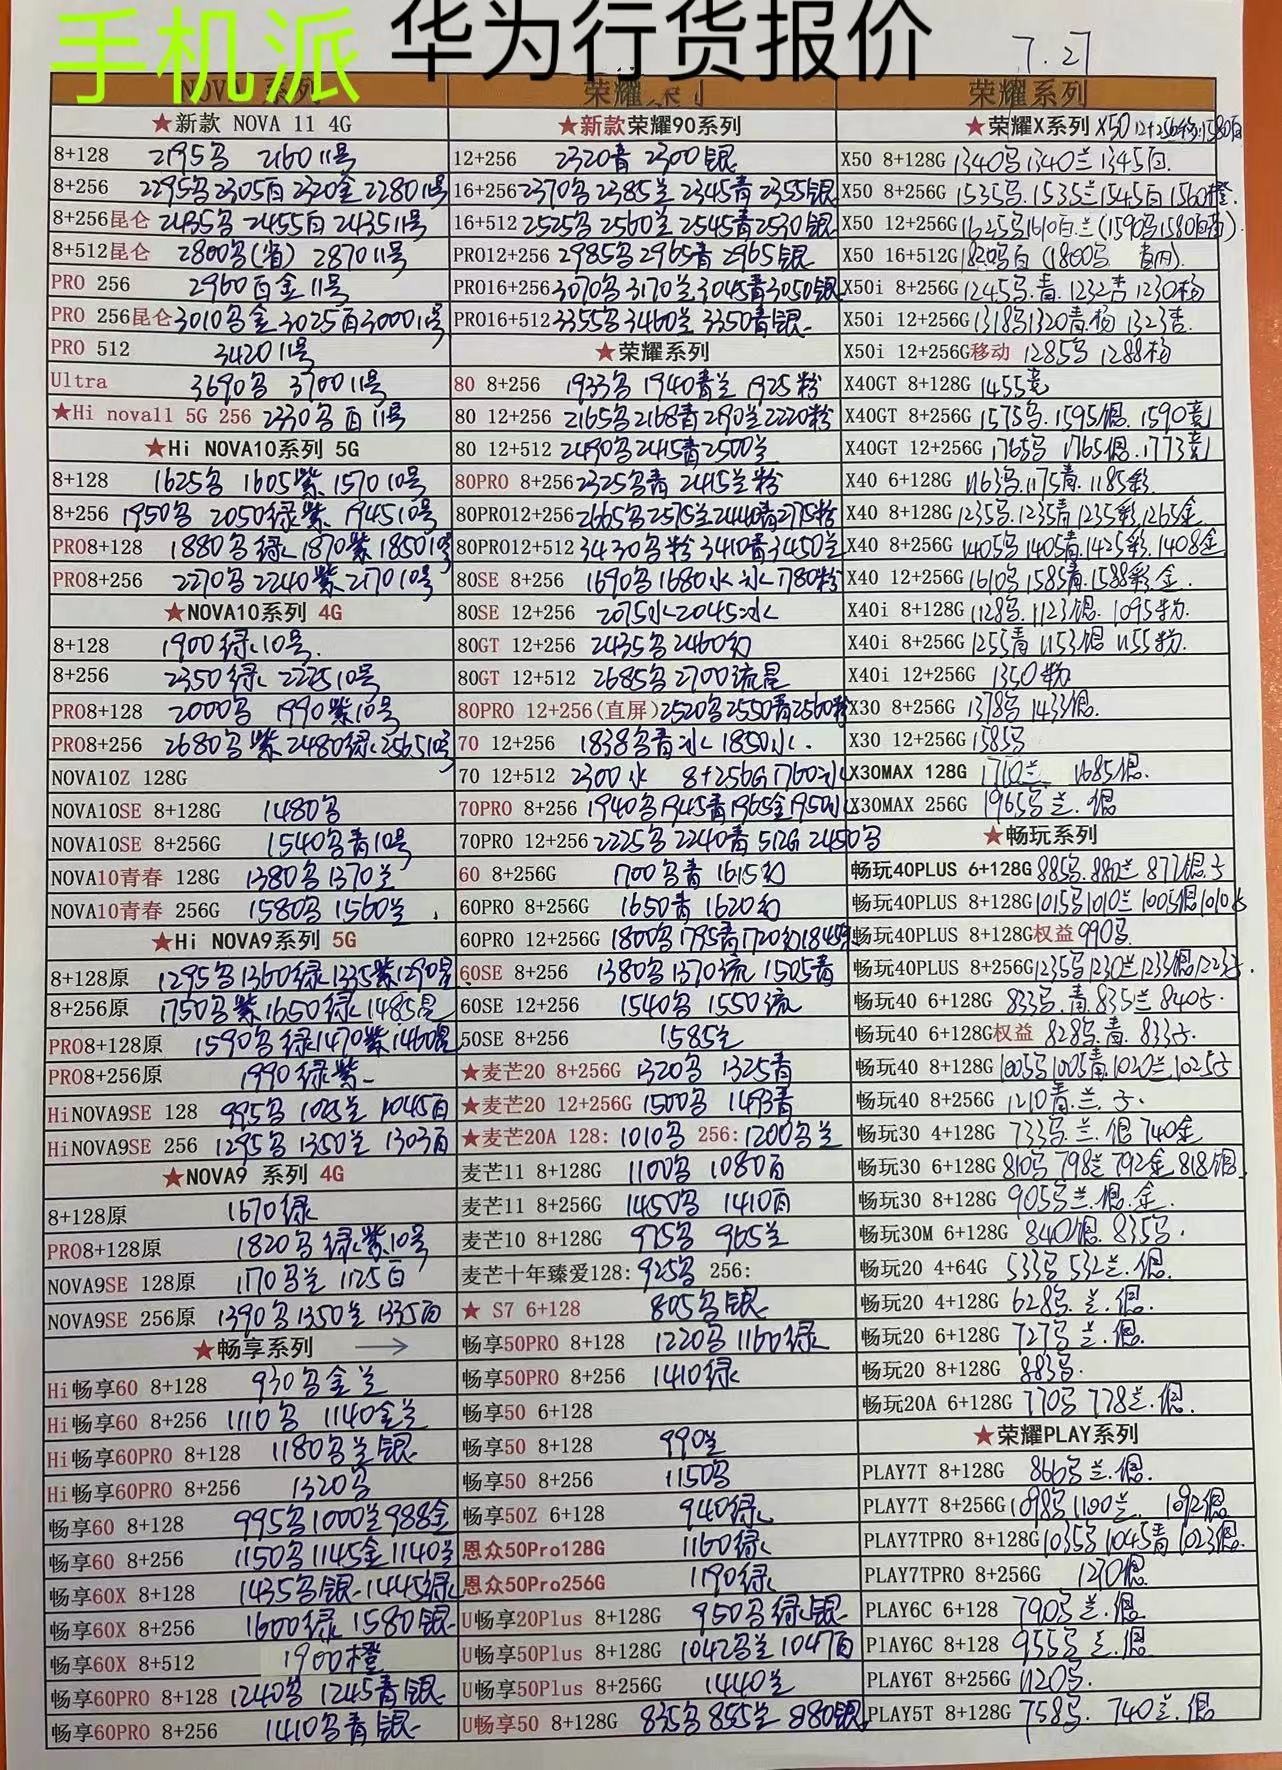 手机派 华为行货报价 7.27
NOVA 系列
★新款 NOVA 11 4G
8+128 2195乌 2160 11号
8+256 2295乌 2305百 2320金 2280 11号
8+256昆仑 2435乌 2455百 2435 11号
8+512昆仑 2800乌(省) 2870 11号
PRO 256 2960百金 11号
PRO 256昆仑 3010乌金 3025百 3000 11号
PRO 512 3420 11号
Ultra 3690乌 3700 11号
★Hi nova11 5G 256 2330乌百 11号
★Hi NOVA10系列 5G
8+128 1625乌 1605紫 1570 10号
8+256 1950乌 2050绿紫 1945 10号
PRO8+128 1880乌绿 1870紫 1850 10号
PRO8+256 2270乌 2240紫 2170 10号
★NOVA10系列 4G
8+128 1900绿 10号
8+256 2350绿 2225 10号
PRO8+128 2000乌 1990紫 10号
PRO8+256 2680乌紫 2480绿 2565 10号
NOVA10Z 128G
NOVA10SE 8+128G 1480乌
NOVA10SE 8+256G 1540乌青 10号
NOVA10青春 128G 1380乌 1370兰
NOVA10青春 256G 1580乌 1560兰
★Hi NOVA9系列 5G
8+128原 1295乌 1360绿 1335紫 1290星
8+256原 1750乌紫 1650绿 1485星
PRO8+128原 1590乌绿 1470紫 1460星
PRO8+256原 1990绿紫
HiNOVA9SE 128 995乌 1025兰 1045百
HiNOVA9SE 256 1295乌 1350兰 1303百
★NOVA9 系列 4G
8+128原 1670绿
PRO8+128原 1820乌绿紫 10号
NOVA9SE 128原 1170乌兰 1125百
NOVA9SE 256原 1390乌 1350兰 1335百
★畅享系列 →
Hi畅享60 8+128 930乌金兰
Hi畅享60 8+256 1110乌 1140金兰
Hi畅享60PRO 8+128 1180乌兰银
Hi畅享60PRO 8+256 1320乌
畅享60 8+128 995乌 1000兰 988金
畅享60 8+256 1150乌 1145金 1140兰
畅享60X 8+128 1435乌银 1445绿
畅享60X 8+256 1600绿 1580银
畅享60X 8+512 1900橙
畅享60PRO 8+128 1240乌 1245青银
畅享60PRO 8+256 1410乌青银
荣耀系列
★新款荣耀90系列
12+256 2320青 2300银
16+256 2370乌 2385兰 2345青 2355银
16+512 2525乌 2560兰 2545青 2530银
PRO12+256 2985乌 2965青 2965银
PRO16+256 3070乌 3170兰 3045青 3050银
PRO16+512 3355乌 3460兰 3350青银
★荣耀系列
80 8+256 1933乌 1940青兰 1925粉
80 12+256 2165乌 2168青 2190兰 2220粉
80 12+512 2490乌 2415青 2500兰
80PRO 8+256 2325乌青 2415兰粉
80PRO12+256 2665乌 2575兰 2440青 2715粉
80PRO12+512 3430乌粉 3410青 3450兰
80SE 8+256 1690乌 1680水冰 1780粉
80SE 12+256 2075水 2045冰
80GT 12+256 2435乌 2460幻
80GT 12+512 2685乌 2700流星
80PRO 12+256(直屏) 2520乌 2550青 2560粉
70 12+256 1838乌青冰 1850水
70 12+512 2300水 8+256G 1760冰
70PRO 8+256 1940乌 1945青 1965金 1950冰
70PRO 12+256 2225乌 2240青 512G 2450乌
60 8+256G 1700乌青 1615幻
60PRO 8+256G 1650青 1620幻
60PRO 12+256G 1800乌 1795青 1720幻 1845
60SE 8+256 1380乌 1370流 1505青
60SE 12+256 1540乌 1550流
50SE 8+256 1585兰
★麦芒20 8+256G 1320乌 1325青
★麦芒20 12+256G 1500乌 1493青
★麦芒20A 128: 1010乌 256: 1200乌兰
麦芒11 8+128G 1100乌 1080百
麦芒11 8+256G 1450乌 1410百
麦芒10 8+128G 975乌 965兰
麦芒十年臻爱128: 925乌 256:
★ S7 6+128 805乌银
畅享50PRO 8+128 1220乌 1160绿
畅享50PRO 8+256 1410绿
畅享50 6+128
畅享50 8+128 990兰
畅享50 8+256 1150乌
畅享50Z 6+128 940绿
恩众50Pro128G 1160绿
恩众50Pro256G 1190绿
U畅享20Plus 8+128G 950乌绿银
U畅享50Plus 8+128G 1042乌兰 1047百
U畅享50Plus 8+256G 1440兰
U畅享50 8+128G 835乌 855兰 880银
荣耀系列
★荣耀X系列 X50 12+256 1580百
X50 8+128G 1340乌 1340兰 1345百
X50 8+256G 1535乌 1535兰 1545百 1560橙
X50 12+256G 1625乌 1610百兰 (1590乌 1580百)
X50 16+512G 1820乌百 (1800乌)
X50i 8+256G 1245乌青 1232杏 1230杨
X50i 12+256G 1318乌 1320青杨 1323杏
X50i 12+256G移动 1285乌 1288杨
X40GT 8+128G 1455竞
X40GT 8+256G 1575乌 1595银 1590竞
X40GT 12+256G 1765乌 1765银 1773竞
X40 6+128G 1163乌 1175青 1185彩
X40 8+128G 1235乌 1235青 1235彩 1265金
X40 8+256G 1405乌 1405青 1425彩 1408金
X40 12+256G 1610乌 1585青 1588彩金
X40i 8+128G 1128乌 1123银 1095粉
X40i 8+256G 1255青 1153银 1155粉
X40i 12+256G 1350粉
X30 8+256G 1378乌 1433银
X30 12+256G 1585乌
X30MAX 128G 1710兰 1685银
X30MAX 256G 1965乌兰银
★畅玩系列
畅玩40PLUS 6+128G 885乌 880兰 877银子
畅玩40PLUS 8+128G 1015乌 1010兰 1005银 1010
畅玩40PLUS 8+128G权益 990乌
畅玩40PLUS 8+256G 1235乌 1230兰 1233银 1223子
畅玩40 6+128G 833乌青 835兰 840子
畅玩40 6+128G权益 828乌青 833子
畅玩40 8+128G 1005乌 1005青 1020兰 1025子
畅玩40 8+256G 1210青兰子
畅玩30 4+128G 733乌兰银 740金
畅玩30 6+128G 810乌 798兰 792金 818银
畅玩30 8+128G 905乌兰银金
畅玩30M 6+128G 840银 835乌
畅玩20 4+64G 533乌 532兰银
畅玩20 4+128G 628乌兰银
畅玩20 6+128G 727乌兰银
畅玩20 8+128G 883乌
畅玩20A 6+128G 770乌 778兰银
★荣耀PLAY系列
PLAY7T 8+128G 866乌兰银
PLAY7T 8+256G 1098乌 1100兰 1092银
PLAY7TPRO 8+128G 1035乌 1045青 1023银
PLAY7TPRO 8+256G 1210银
PLAY6C 6+128 790乌兰银
PlAY6C 8+128 955乌兰银
PLAY6T 8+256G 1120乌
PLAY5T 8+128G 758乌 740兰银